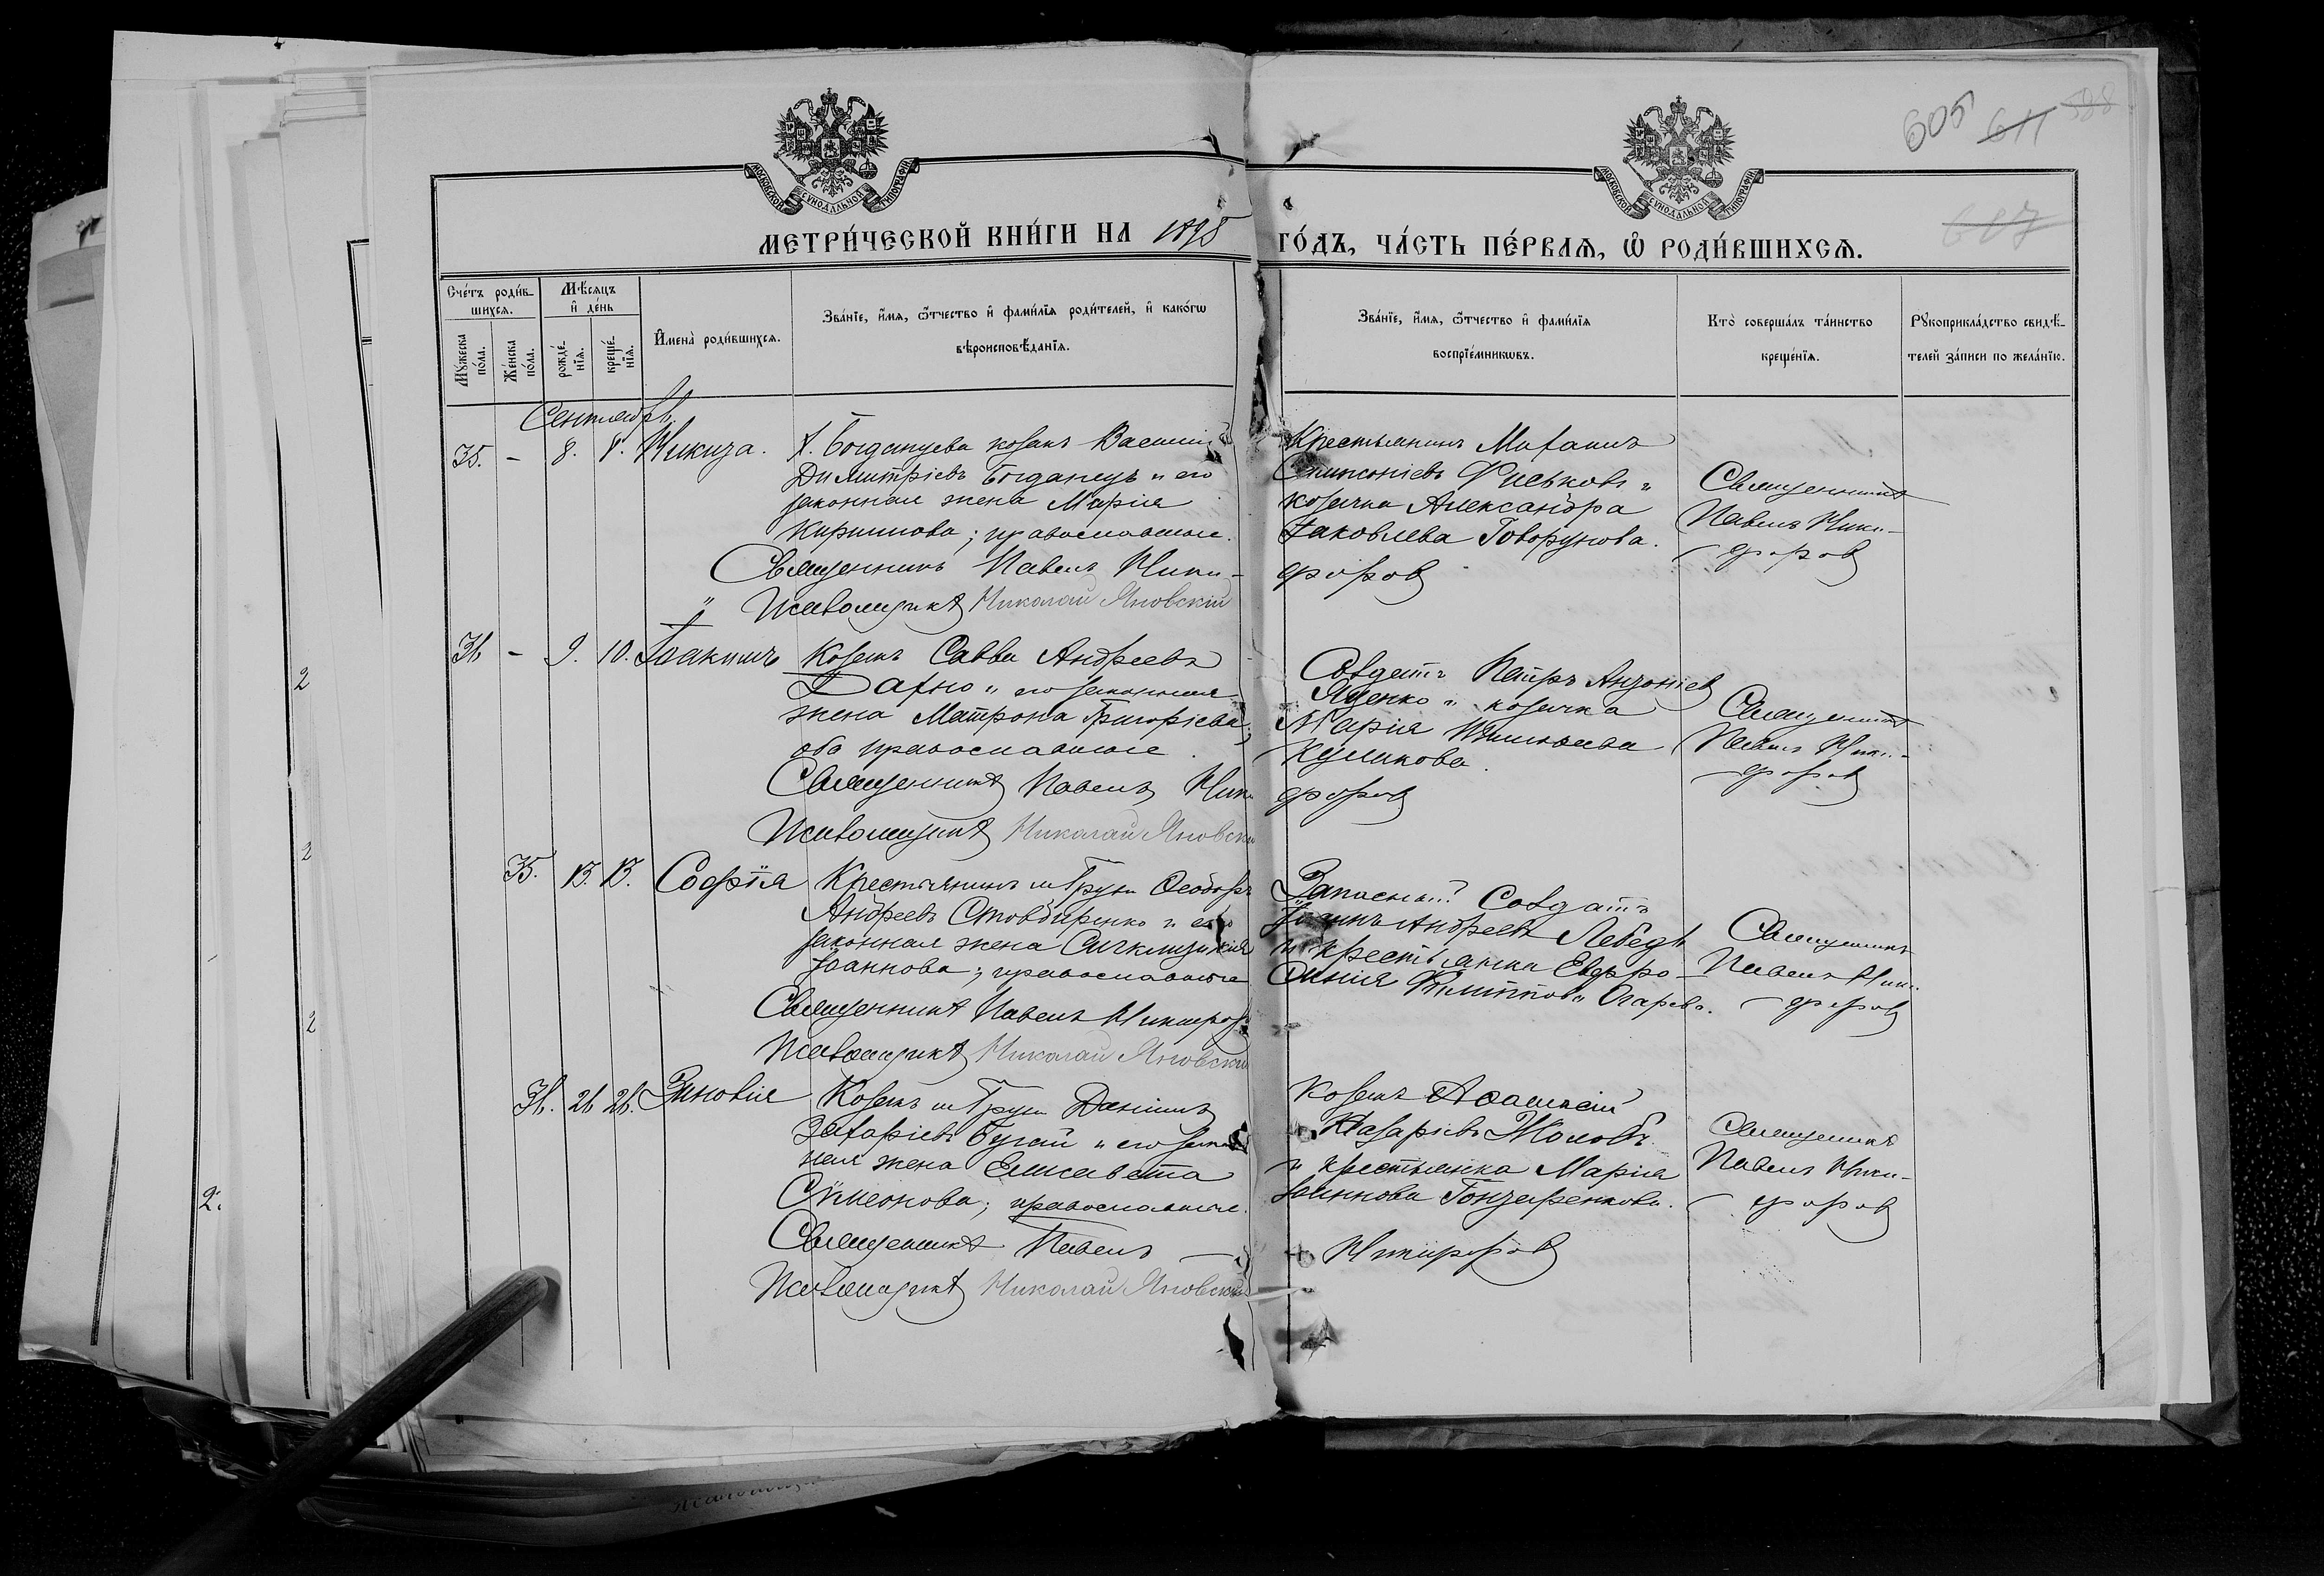 605 611 598
607
МОСКОВСКОЙ СѴНОДАЛЬНОЙ ТИПОГРАФІИ
МОСКОВСКОЙ СѴНОДАЛЬНОЙ ТИПОГРАФІИ
МЕТРИ́ЧЕСКОЙ КНИ́ГИ НА 1898
ГО́ДЪ, ЧА́СТЬ ПЕ́РВАЯ, Ѡ РОДИ́ВШИХСЯ.
Сче́тъ роди́в-
шихся.
Мꙋ́жеска
по́ла.
Же́нска
по́ла.
Мѣ́сяцъ
и҆ де́нь
рожде́-
нїя.
креще́-
нїя.
И҆мена̀ роди́вшихся.
Зва́нїе, и҆́мя, ѻ҆́тчество и҆ фами́лїя роди́телей, и҆ како́гѡ
вѣроисповѣ́данїя.
Зва́нїе, и҆́мя, ѻ҆́тчество и҆ фами́лїя
воспрїе́мникѡвъ.
Кто̀ соверша́лъ та́инство
креще́нїя.
Рꙋкоприкла́дство свидѣ́-
телей за́писи по жела́нїю.
Сентябрь
35. - 8. 8. Никита. х. Богданцева козакъ Василій
Димитріевъ Богданецъ и его
законная жена Марія
Кириллова; православные.
Священникъ Павелъ Ники-
Псаломщикъ Николай Яновскій
Крестьянинъ Михаилъ
Фиськовъ и
козачка Александра
Іаковлева Говорунова.
форовъ
Священникъ
Павелъ Ники-
форовъ
36 - 9. 10. Іоакимъ Козакъ Савва Андреевъ
Дахно и его законная
жена Матрона Григоріева;
оба православные.
Священникъ Павелъ Ники
Псаломщикъ Николай Яновскій
Солдатъ Петръ Антоніевъ
Яценко и козачка
Марія
Куликова.
форовъ
Священникъ
Павелъ Ники-
форовъ
35. 13. 13. Софія Крестьянинъ м. Груни Ѳеодоръ
Андреевъ Стовбиренко и его
законная жена
Іоаннова; православные
Священникъ Павелъ Никифоровъ
Псаломщикъ Николай Яновскій
Запасный Солдатъ
Іоаннъ Андреевъ Лебедь
и крестьянка Евфро-
синія Филиппова Огарева.
Священникъ
Павелъ Ники-
форовъ
36. 26 26. Зиновія Козакъ м. Груни Даніилъ
Захаріевъ Бугай и его закон
ная жена Елисавета
Симеонова; православные.
Священникъ Павелъ
Псаломщикъ Николай Яновскій
Козакъ Аѳанасій
Назаріевъ Жолобъ
и крестьянка Марія
Іоаннова Гончаренкова.
Никифоровъ
Священникъ
Павелъ Ники-
форовъ
2
2
2
2.